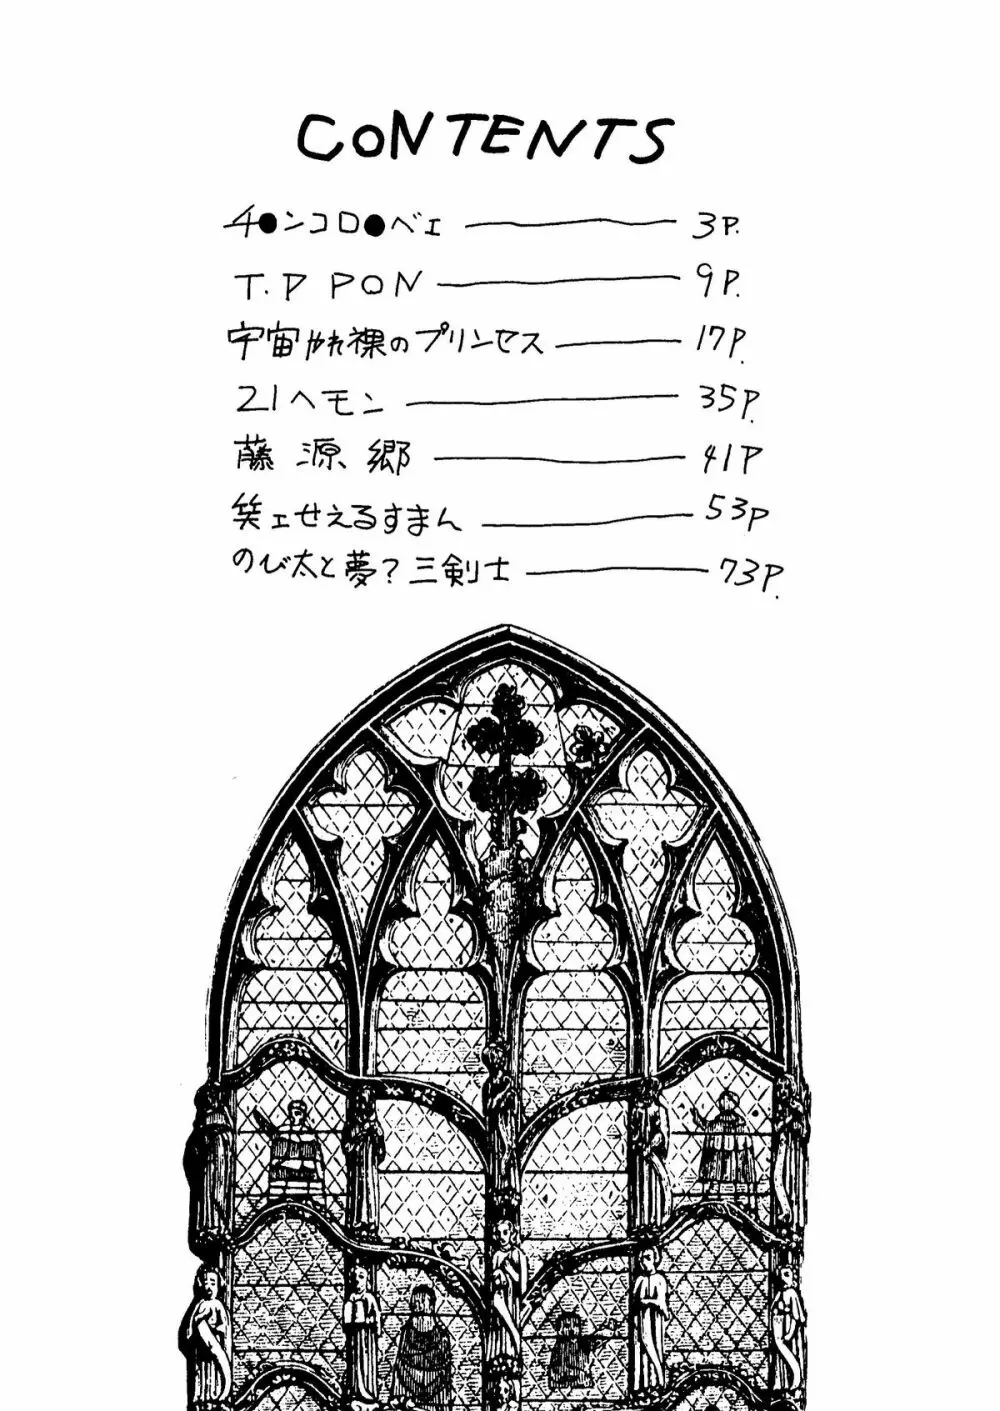 CONTENTS
チ●ンコロ●ベエ 3P.
T.P PON 9P.
宇宙やれ裸のプリンセス 17P.
21ヘモン 35P.
藤源郷 41P
笑ェせえるすまん 53P
のび太と夢?三剣士 73P.